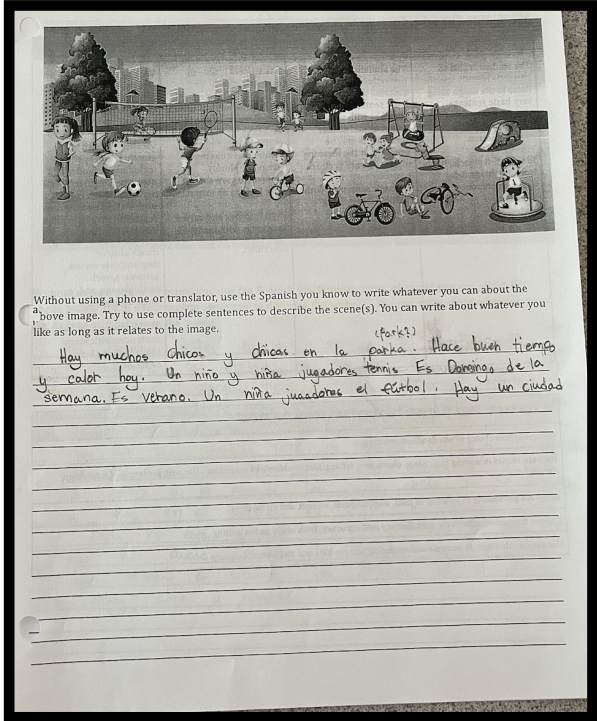 Without using a phone or translator, use the Spanish you know to write whatever you can about the
above image. Try to use complete sentences to describe the scene(s). You can write about whatever you
like as long as it relates to the image.
(park?)
Hay muchos chicos y chicas en la parka. Hace buen tiempo
y calor hoy. Un niño y niña jugadores tennis Es Domingo de la
semana. Es verano. Un niña juaadores el fútbol. Hay un ciudad